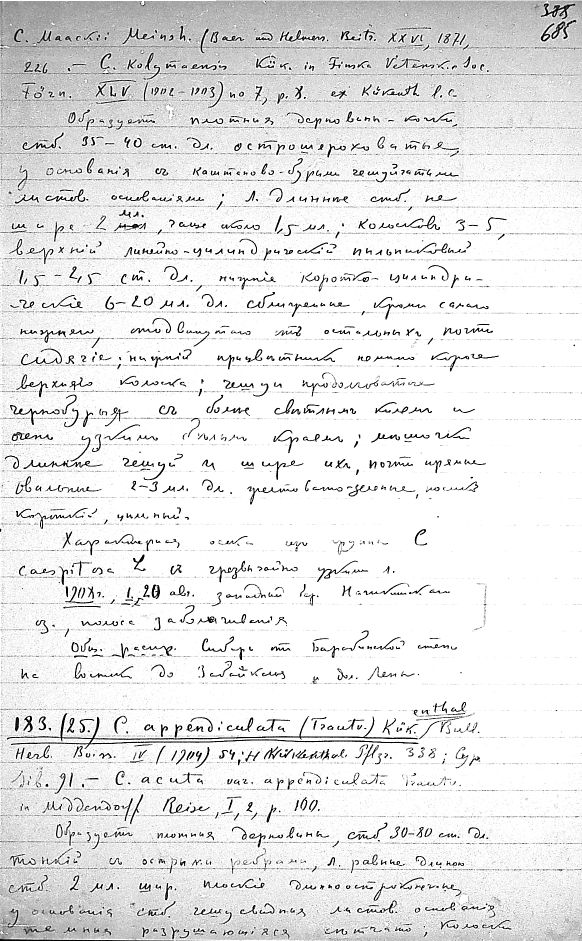 388
685
C. Maackii Meinsh. (Baer und Helmers. Beitr. XXVI, 1871,
226. — C. Kolymaensis Kük. in Finska Vetensk. Soc.
Förh. XLV (1902-1903) no 7, p. 8. ex Kükenth. l. c.
Образуетъ плотныя дерновины-кочки,
стб. 35-40 ст. дл. острошероховатые,
у основанія съ каштаново-бурыми чешуйчатыми
листов. основаніями; л. длиннѣе стб., не
шире 2 мл., чаще около 1,5 мл.; колосковъ 3-5,
верхній линейно-цилиндрическій пыльниковый
1,5-2,5 ст. дл., нижніе коротко-цилиндри-
ческіе 6-20 мл. дл. сближенные, кромѣ самаго
нижняго, отодвинутаго отъ остальныхъ, почти
сидячіе; нижній прицвѣтникъ немного короче
верхняго колоска; чешуи продолговатыя
чернобурыя съ болѣе свѣтлымъ килемъ и
очень узкимъ бѣлымъ краемъ; мѣшочки
длиннѣе чешуй и шире ихъ, почти
овальные 2-3 мл. дл. -зеленые, носикъ
короткій, цѣльный.
Характерная осока изъ группы C.
caespitosa L. съ чрезвычайно узкими л.
1908 г., 20 авг. западный бер.
оз., полоса заболачиванія
Общ. распр. Сибирь отъ Барабинской степи
на востокъ до Забайкалья и дол. Лены.
183. (25) C. appendiculata (Trautv.) Kükenthal / Bull.
Herb. Boiss. IV (1904) 54; Kükenthal Pflzr. 338; Cyp.
Sib. 91. — C. acuta var. appendiculata Trautv.
in Middendorff Reise, I, 2, p. 100.
Образуетъ плотныя дерновины, стб. 30-80 ст. дл.
тонкій съ острыми ребрами, л. равные длиною
стб. 2 мл. шир. плоскіе длинноостроконечные,
у основанія стб. чешуевидныя листов. основанія
темныя разрушающіяся сѣтчато; колоски